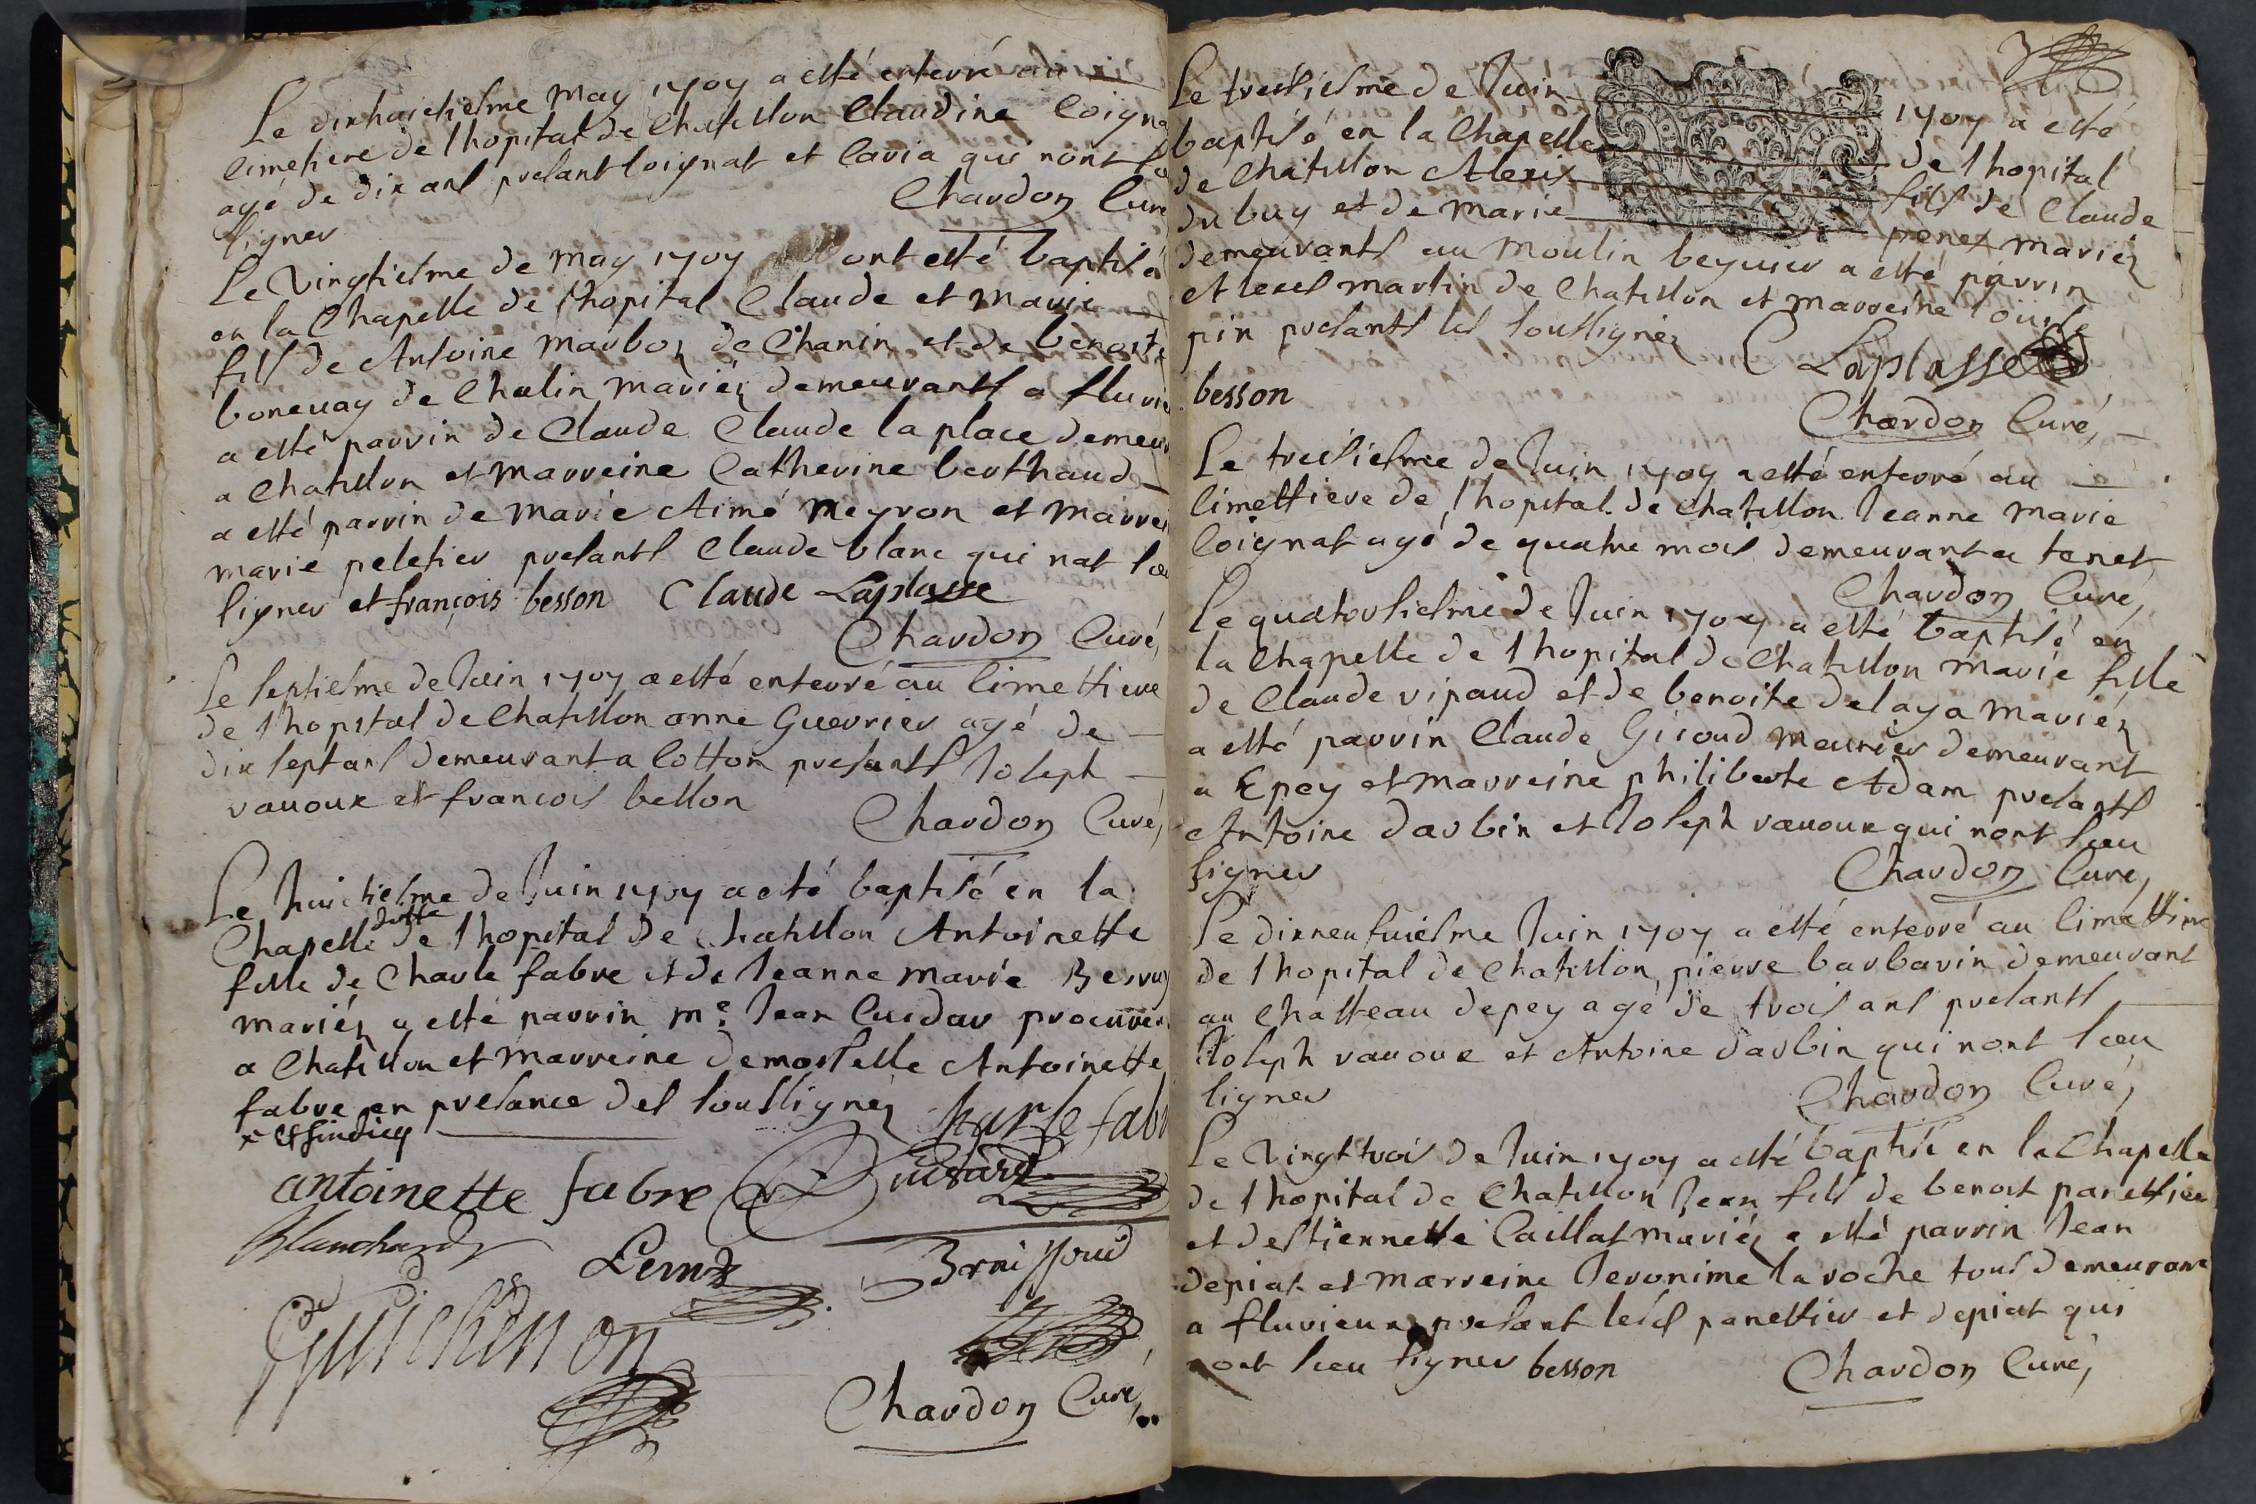 Le dixhuictiesme may 1707 a esté enterré au
cimetiere de l'hopital de Chatillon Claudine Coigna
agé de dix ans presant Coignat et Cavia qui n'ont s
signer
Chardon Curé
Le vingtiesme de may 1707 ont esté baptisé
en la Chapelle de l'hopital Claude et Marie
fils de Antoine Marboz de Chanin et de benoite
boneuay de Chalin mariéz demeurants a fluvie
a esté parrin de Claude Claude la place demeur
a Chatillon et marreine Catherine berthaud
a esté parrin de marie Aimé Meyron et marrei
marie peletier presants Claude blanc qui n'at sceu
signer et françois besson Claude Laplasse
Chardon Curé,
Le septiesme de Juin 1707 a esté enterré au Cimettiere
de l'hopital de Chatillon anne Guerrier agé de
dix sept ans demeurant a Cotton presants Joseph
rauoux et francois besson
Chardon Curé,
Le huictiesme de Juin 1707 a esté baptisé en la
Chapelle de l'hopital de Chatillon Antoinette
fille de Charle fabre et de Jeanne Marie
mariéz a esté parrin me. Jean Cuidar procureur
a Chatillon et marreine demoiselle Antoinette
fabre en presance des soussignéz Charle fabr
x et sindicq
antoinette fabre Cuidard
Blanchard
Brossoud
Guichenon
Chardon Curé,
3
Le treisiesme de Juin 1707 a esté
baptisé en la Chapelle de l'hopital
de Chatillon Alexis fils de Claude
du buy et de marie penet mariéz
demeurants au moulin beguier a esté parrin
Alexis martin de Chatillon et marreine louise
pin presants les soussignéz C Laplasse
besson
Chardon Curé,
Le treisiesme de Juin 1707 a esté enterré au
Cimettiere de l'hopital de Chatillon Jeanne Marie
Coignat agé de quatre mois demeurant a tenet
Chardon Curé,
Le quatorsiesme de Juin 1707 a esté baptisé en
la Chapelle de l'hopital de Chatillon Marie fille
de Claude ripaud et de benoite delaya mariéz
a esté parrin Claude Giroud meunier demeurant
a Epey et marreine philiberte Adam presants
Antoine darbin et Joseph rauoux qui n'ont sceu
signer
Chardon Curé,
Le dixneufuiesme Juin 1707 a esté enterré au Cimettiere
de l'hopital de Chatillon pierre barbarin demeurant
au Chasteau depey agé de trois ans presants
Joseph rauoux et Antoine darbin qui n'ont sceu
signer
Chardon Curé,
Le vingt trois de Juin 1707 a esté baptisé en la Chapelle
de l'hopital de Chatillon Jean fils de benoit panettier
et destiennette Caillat mariéz a esté parrin Jean
depiat et marreine Jeronime la roche tous demeurant
a fluvieux presant lesd panettier et depiat qui
n'ont sceu signer besson
Chardon Curé,